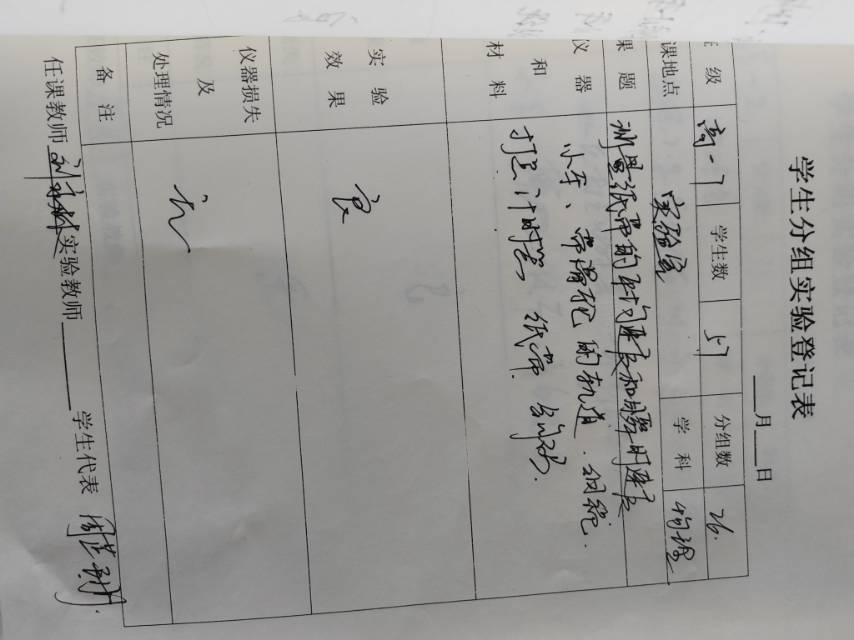 学生分组实验登记表
___月___日
班级 高一7 学生数 57 分组数 26.
课地点 实验室 学科 物理
课题 测量纸带的平均速度和瞬时速度
仪器和材料 小车、带滑轮的轨道、细绳.
打点计时器 纸带.
实验效果 良
仪器损失及处理情况 无
备注
任课教师 实验教师______ 学生代表